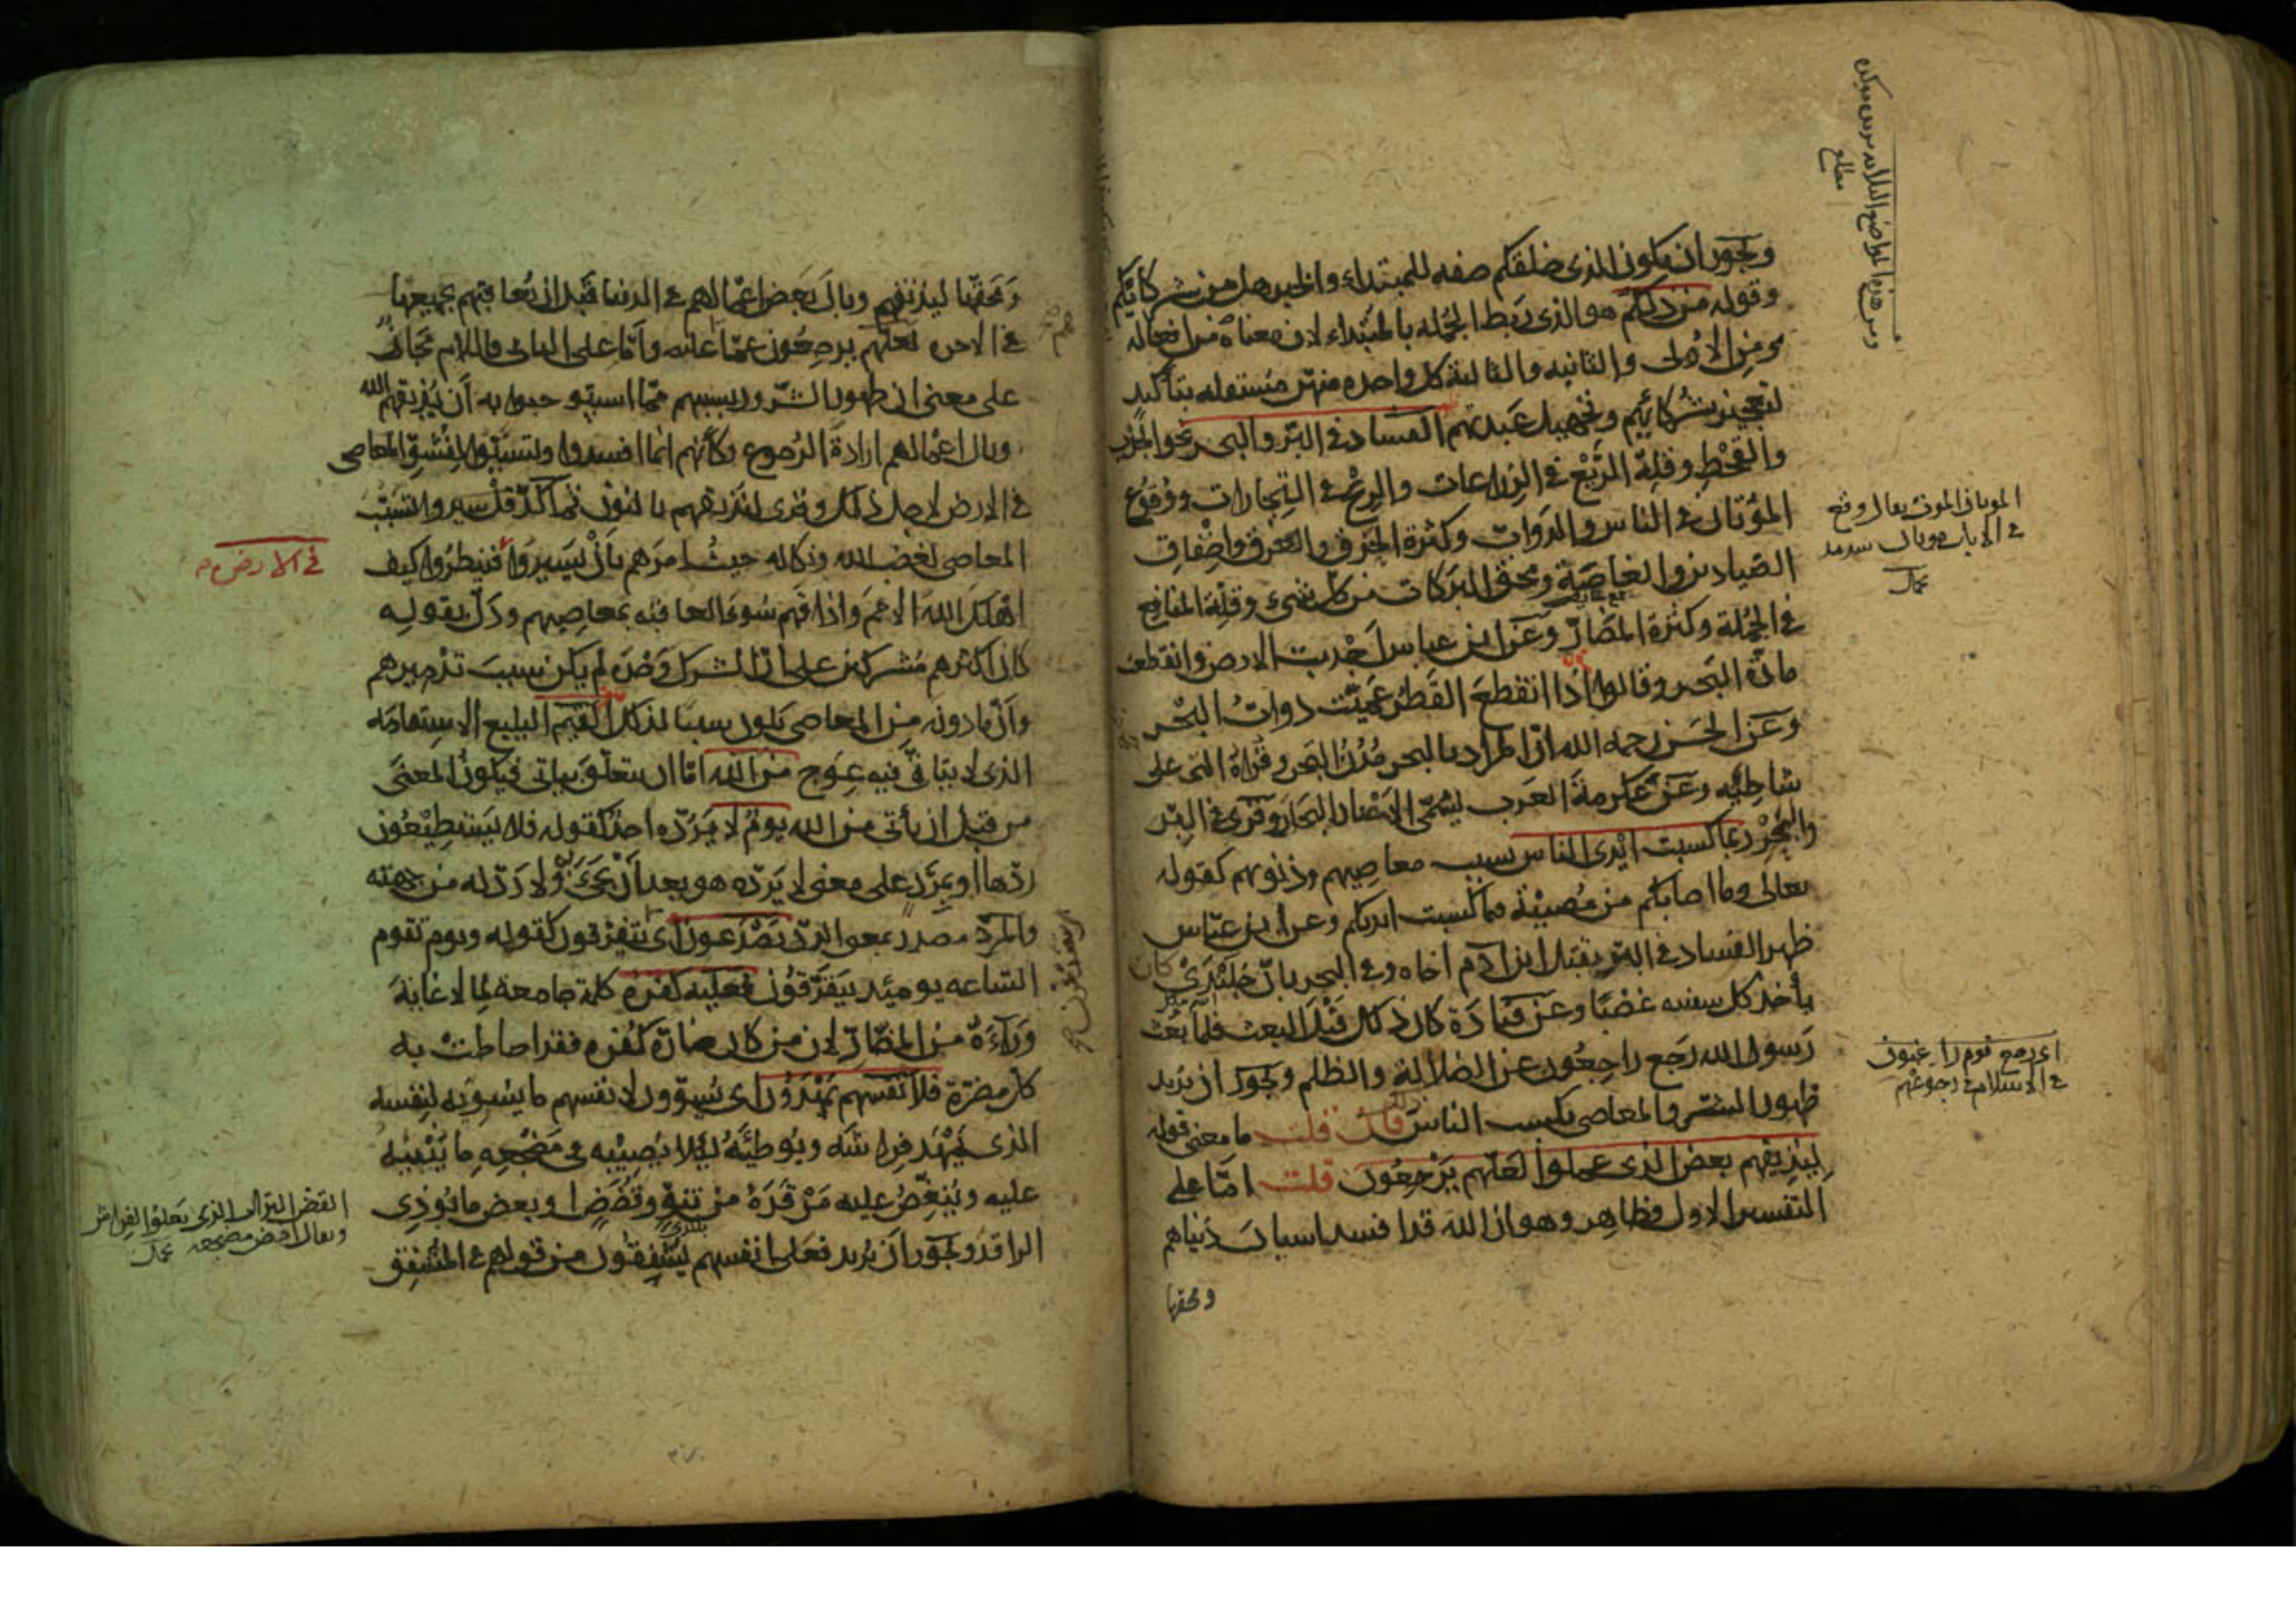 ويجوز ان يكون الذى خلقكم صفه للمبتداء والخبر هل من شركائكم
وقوله من ذلكم هو الذى ربط الجمله بالمبتداء لان معناه من افعاله
ومن الاولى والثانيه والثالثة كل واحده منهن مستقله بتأكيد
لتعجيز شركائهم وتجهيل عبدتهم الفساد فى البر والبحر نحو الجدب
والقحط وقلة الريع فى الزراعات والربح فى التجارات ووقوع
الموتان فى الناس والدواب وكثرة الحرق والغرق واخفاق
الصيادين والغاصة ومحق البركات من كل شىء وقلة المنافع
فى الجملة وكثرة المضار وعن ابن عباس اجدبت الارض وانقطعت
مادة البحر وقالوا اذا انقطع القطر عميت دواب البحر
وعن الحسن رحمه الله ان المراد بالبحر مدن البحر وقراه التى على
شاطئه وعن عكرمة العرب تسمى الامصار البحار وقرئ فى البر
والبحر بما كسبت ايدى الناس بسبب معاصيهم وذنوبهم كقوله
تعالى وما اصابكم من مصيبة فبما كسبت ايديكم وعن ابن عباس
ظهر الفساد فى البر بقتل ابن آدم اخاه وفى البحر بان جلندى كان
يأخذ كل سفينه غصبا وعن قتادة كان ذلك قبل البعث فلما بعث
رسول الله رجع راجعون عن الضلالة والظلم ويجوز ان يريد
ظهور الشر والمعاصى بكسب الناس ذلك فان قلت ما معنى قوله
ليذيقهم بعض الذى عملوا لعلهم يرجعون قلت اما على
التفسير الاول فظاهر وهو ان الله قد افسد اسباب دنياهم
ومحقها
الموتان الموت يقال وقع
فى الابل موتان شديد
اى رجع قوم راغبون
فى الاسلام فى رجوعهم
ومحقها ليذيقهم وبال بعض اعمالهم فى الدنيا قبل ان يعاقبهم بجميعها
فى الاخره لعلهم يرجعون عما هم عليه واما على الثانى فاللام مجاز
على معنى ان ظهور الشرور بسببهم مما استوجبوا به ان يذيقهم الله
وبال اعمالهم ارادة الرجوع وكأنهم انما افسدوا وتسببوا لفشو المعاصى
فى الارض لاجل ذلك وقرئ لنذيقهم بالنون ثم اكد قل سيروا تسبب
المعاصى لغضب الله ونكاله حيث امرهم بان يسيروا فينظروا كيف
فى الارض صح
اهلك الله الامم واذاقهم سوء العاقبه بمعاصيهم ودل بقوله
كان اكثرهم مشركين على ان الشرك وحده لم يكن سبب تدميرهم
وان ما دونه من المعاصى يكون سببا لذلك القيم البليغ الاستقامه
الذى لا يتأتى فيه عوج من الله اما ان يتعلق بياتى فيكون المعنى
من قبل ان يأتى من الله يوم لا يرده احد كقوله فلا يستطيعون
ردها او بمرد على معنى لا يرده هو بعد ان يجئ به ولا رد له من جهته
والمرد مصدر بمعنى الرد يصدعون اى يتفرقون كقوله ويوم تقوم
الساعه يومئذ يتفرقون فعليه كفره كلمة جامعة لما لا غاية
وراءه من المضار لان من كان ضاره كفره فقد احاطت به
كل مضرة فلانفسهم يمهدون اى يسوون لانفسهم ما يسويه لنفسه
الذى يمهد فراشه ويوطئه لئلا يصيبه فى مضجعه ما ينبيه
عليه وينغص عليه مرقده من نتو وقضض او بعض ما يوذى
الراقد ويجوز ان يريد فعلى انفسهم يشفقون من قولهم فى المشفق
القضض التراب الذى يعلو الفراش
ويقال اقض مضجعه